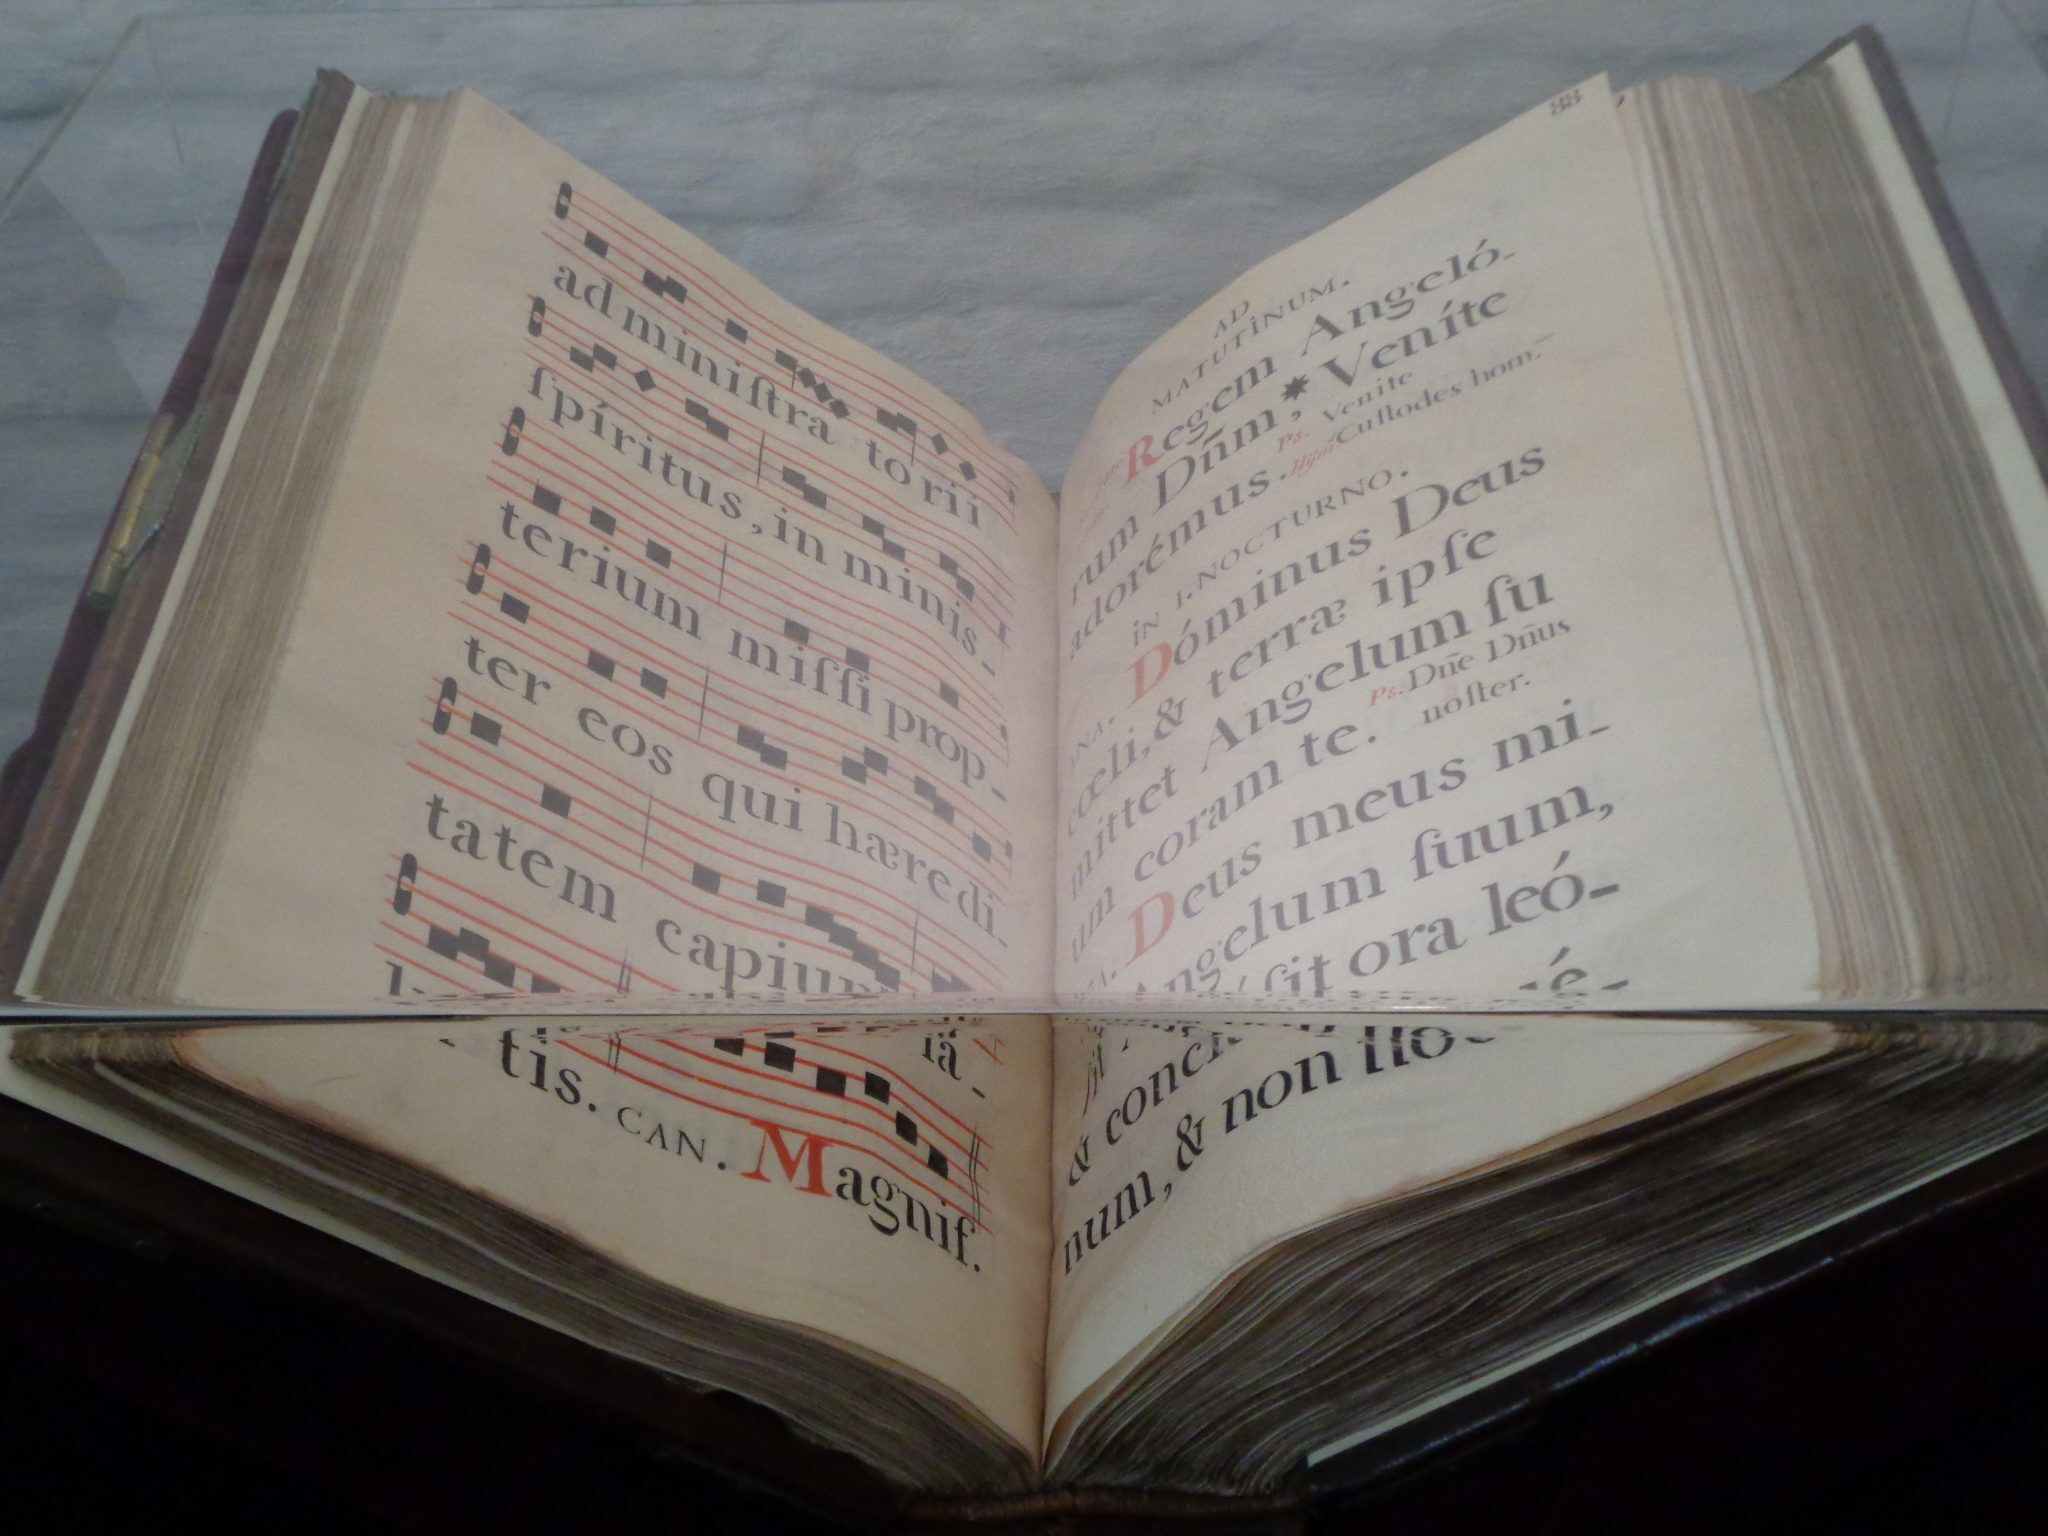 adminiſtra torii
ſpíritus, in minis-
terium miſſi prop-
ter eos qui hæredi-
tatem capiun
tis. CAN. Magnif.
AD
MATUTINUM.
Regem Angeló-
rum Dñm, * Veníte
adorémus. Ps. Venite
Hÿm. Cuſtodes hom.
IN I. NOCTURNO.
Dóminus Deus
cœli, & terræ ipſe
mittet Angelum ſu
um coram te. Ps. Dñe Dñus
noſter.
Deus meus mi-
Angelum ſuum,
ſit ora leó-
& conc
num, & non